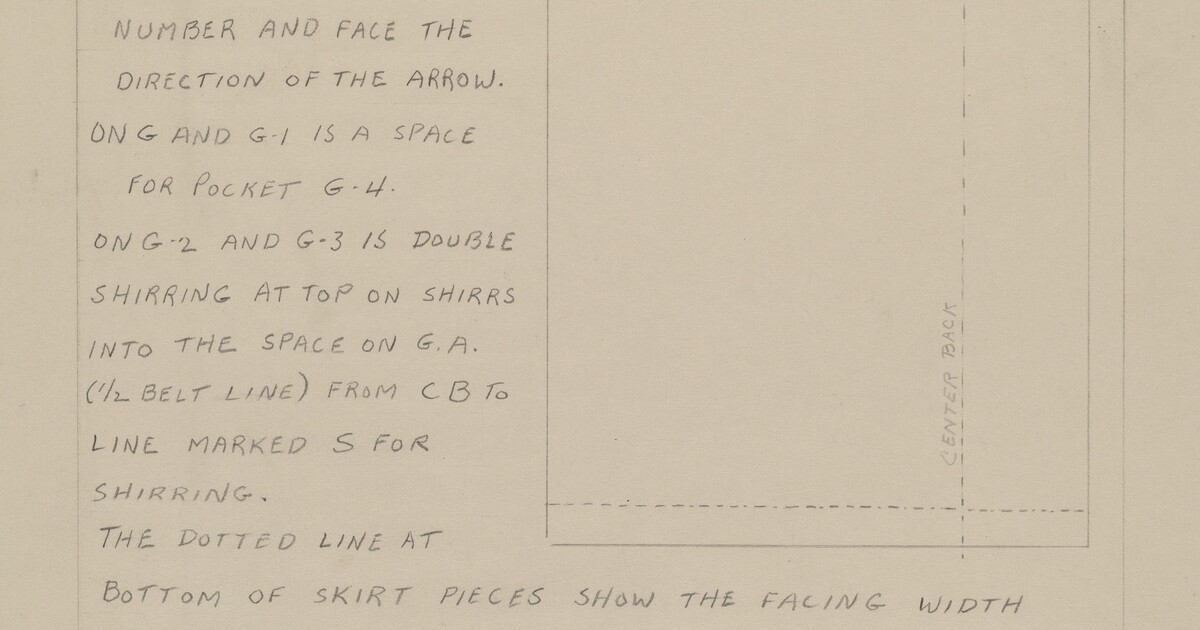 NUMBER AND FACE THE
DIRECTION OF THE ARROW.
ON G AND G-1 IS A SPACE
FOR POCKET G-4.
ON G-2 AND G-3 IS DOUBLE
SHIRRING AT TOP ON SHIRRS
INTO THE SPACE ON G.A.
(1/2 BELT LINE) FROM C B TO
LINE MARKED S FOR
SHIRRING.
THE DOTTED LINE AT
BOTTOM OF SKIRT PIECES SHOW THE FACING WIDTH
CENTER BACK